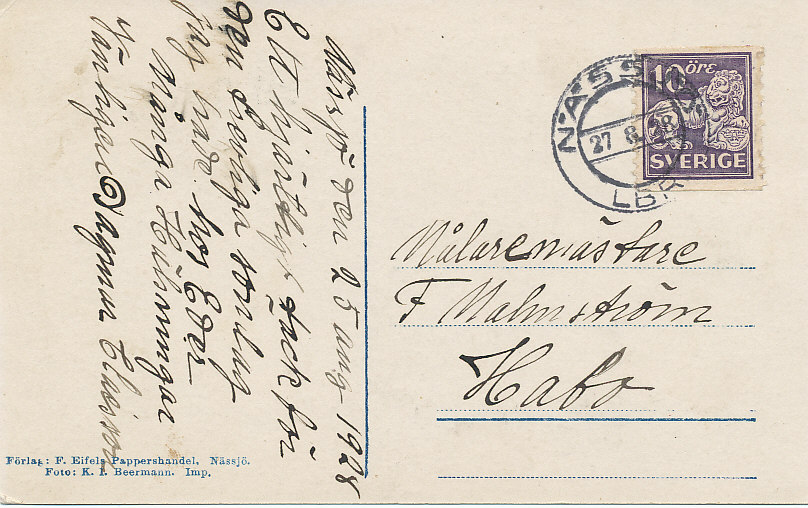 Nässjö den 25 aug 1928
Ett hjärtligt tack för
den trevliga söndag
jag hade hos Eder
Många Hälsningar
Dagmar
NÄSSJÖ
27 8 28
LBR
10 ÖRE
SVERIGE
Målaremästare
F Malmström
Habo
Förlag: F. Eifels Pappershandel, Nässjö.
Foto: K. I. Beermann. Imp.